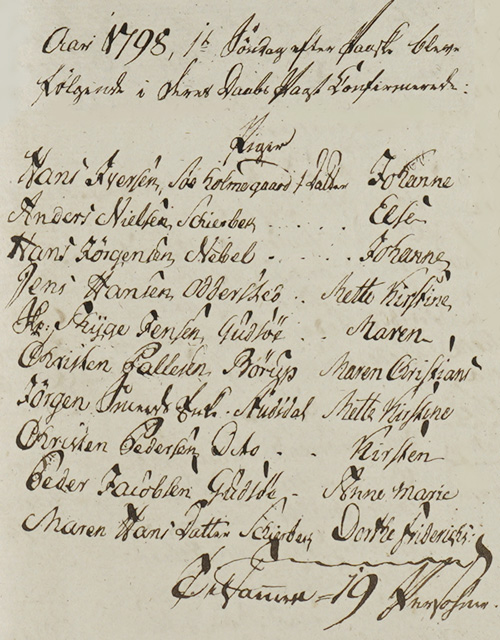 Aar 1798, 1te Søndag efter Paaske bleve
følgende i deres Daabs Pagt Confirmerede:
Piger
Hans Iversen, Søeholmgaard Datter Johanne
Anders Nielsen, Schierbek . . . . . Else
Hans Jørgensen Nebel - . . . Johanne
Jens Hansen Oddersted . . Mette Kirstine
Hr: Skyge Jensen, Gudsøe - Maren
Christen Pallesen, Børup Maren Christians
Jörgen Nudsdal Mette Kirstine
Christen Pedersen Dito . . Kirsten
Peder Jacobsen Gudsøe - Anne Marie
Maren Hans Datter Schierbek Dorthe Friderichs:
Tilsammen = 19 Personer.